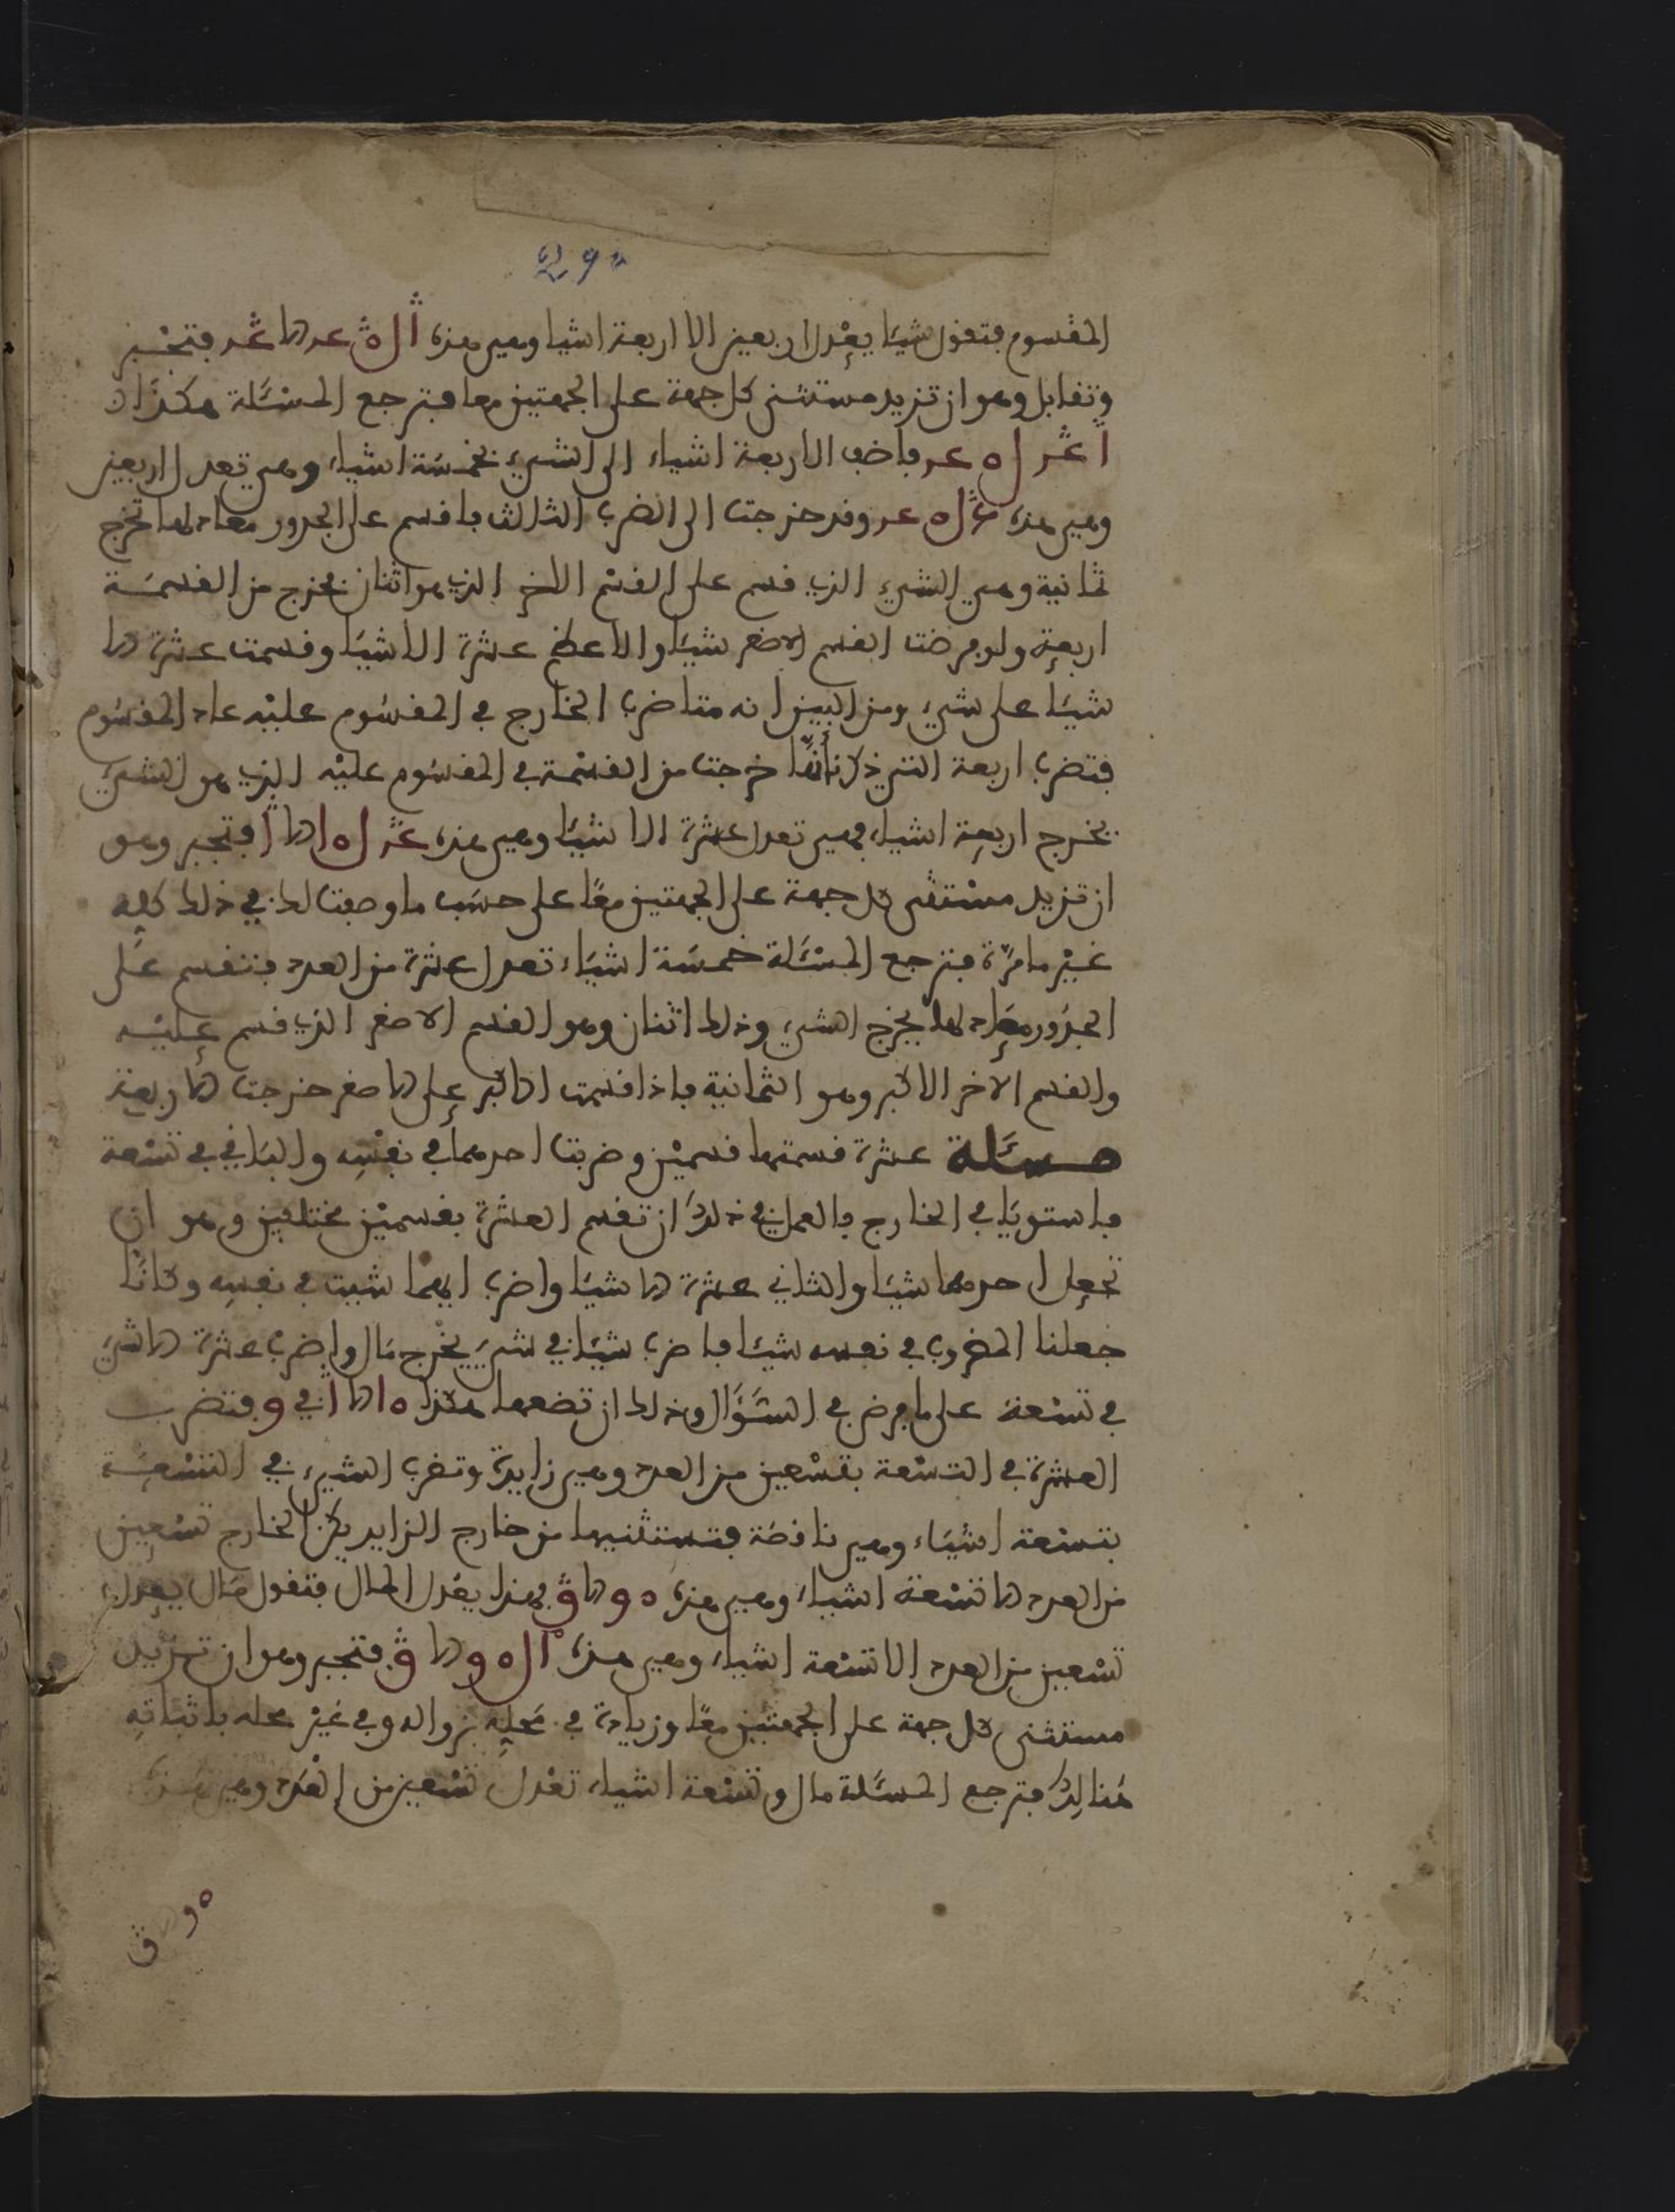 290
المقسوم فتقول شيئا يعدل اربعين الا اربعة اشيا وهي هذه فتجبر
وتقابل وهو ان تزيد مستثنى كل جهة على الجهتين معا فترجع المسئلة هكذا
فاضف الاربعة اشياء الى الشيء بخمسة اشياء وهي تعدل اربعين
وهي هذه وقد خرجت الى الضرب الثالث فاقسم على الجذور معادلها تخرج
ثمانية وهي الشيء الذي قسم على القسم الاخر الذي هو اثنان يخرج من القسمة
اربعة ولو فرضت القسم الاصغر شيئا والاعظم عشرة الا شيئا وقسمت عشرة الا
شيئا على شيء ومن البين انه متا ضرب الخارج في المقسوم عليه عاد المقسوم
فتضرب اربعة التي ذكرنا أنها خرجت من القسمة في المقسوم عليه الذي هو الشيء
يخرج اربعة اشياء فهي تعدل عشرة الا شيئا وهي هذه فتجبر وهو
ان تزيد مستثنى كل جهة على الجهتين معًا على حسب ما وصفت لك في ذلك كله
غير ما مرّة فترجع المسئلة خمسة اشياء تعدل عشرة من العدد فتقسم على
الجذور معادلها يخرج الشيء وذلك اثنان وهو القسم الاصغر الذي قسم عليه
والقسم الاخر الاكبر وهو الثمانية فاذا قسمت الاكبر على الاصغر خرجت الاربعة
مسئلة عشرة قسمتها قسمين وضربت احدهما في نفسه والباقي في تسعة
فاستويا في الخارج فالعمل في ذلك ان تقسم العشرة بقسمين مختلفين وهو ان
تجعل احدهما شيئا والثاني عشرة الا شيئا واضرب ايهما شيت في نفسه وكانّا
جعلنا المضروب في نفسه شيئا فاضرب شيئا في شيء يخرج مال واضرب عشرة الا شيء
في تسعة على ما فرض في السؤال وذلك ان تضعها هكذا فتضرب
العشرة في التسعة بتسعين من العدد وهي زايدة وتضرب الشيء في التسعة
بتسعة اشياء وهي ناقصة فتستثنيها من خارج الزايد يكن الخارج تسعين
من العدد الا تسعة اشياء وهي هذه فهذا يعدل المال فتقول مال يعدل
تسعين من العدد الا تسعة اشياء وهي هذه فتجبر وهو ان تزيد
مستثنى كل جهة على الجهتين معًا وزيادة في محله بزواله وفي غير محله باثباته
هنالك فترجع المسئلة مال وتسعة اشياء تعدل تسعين من العدد وهي هذه